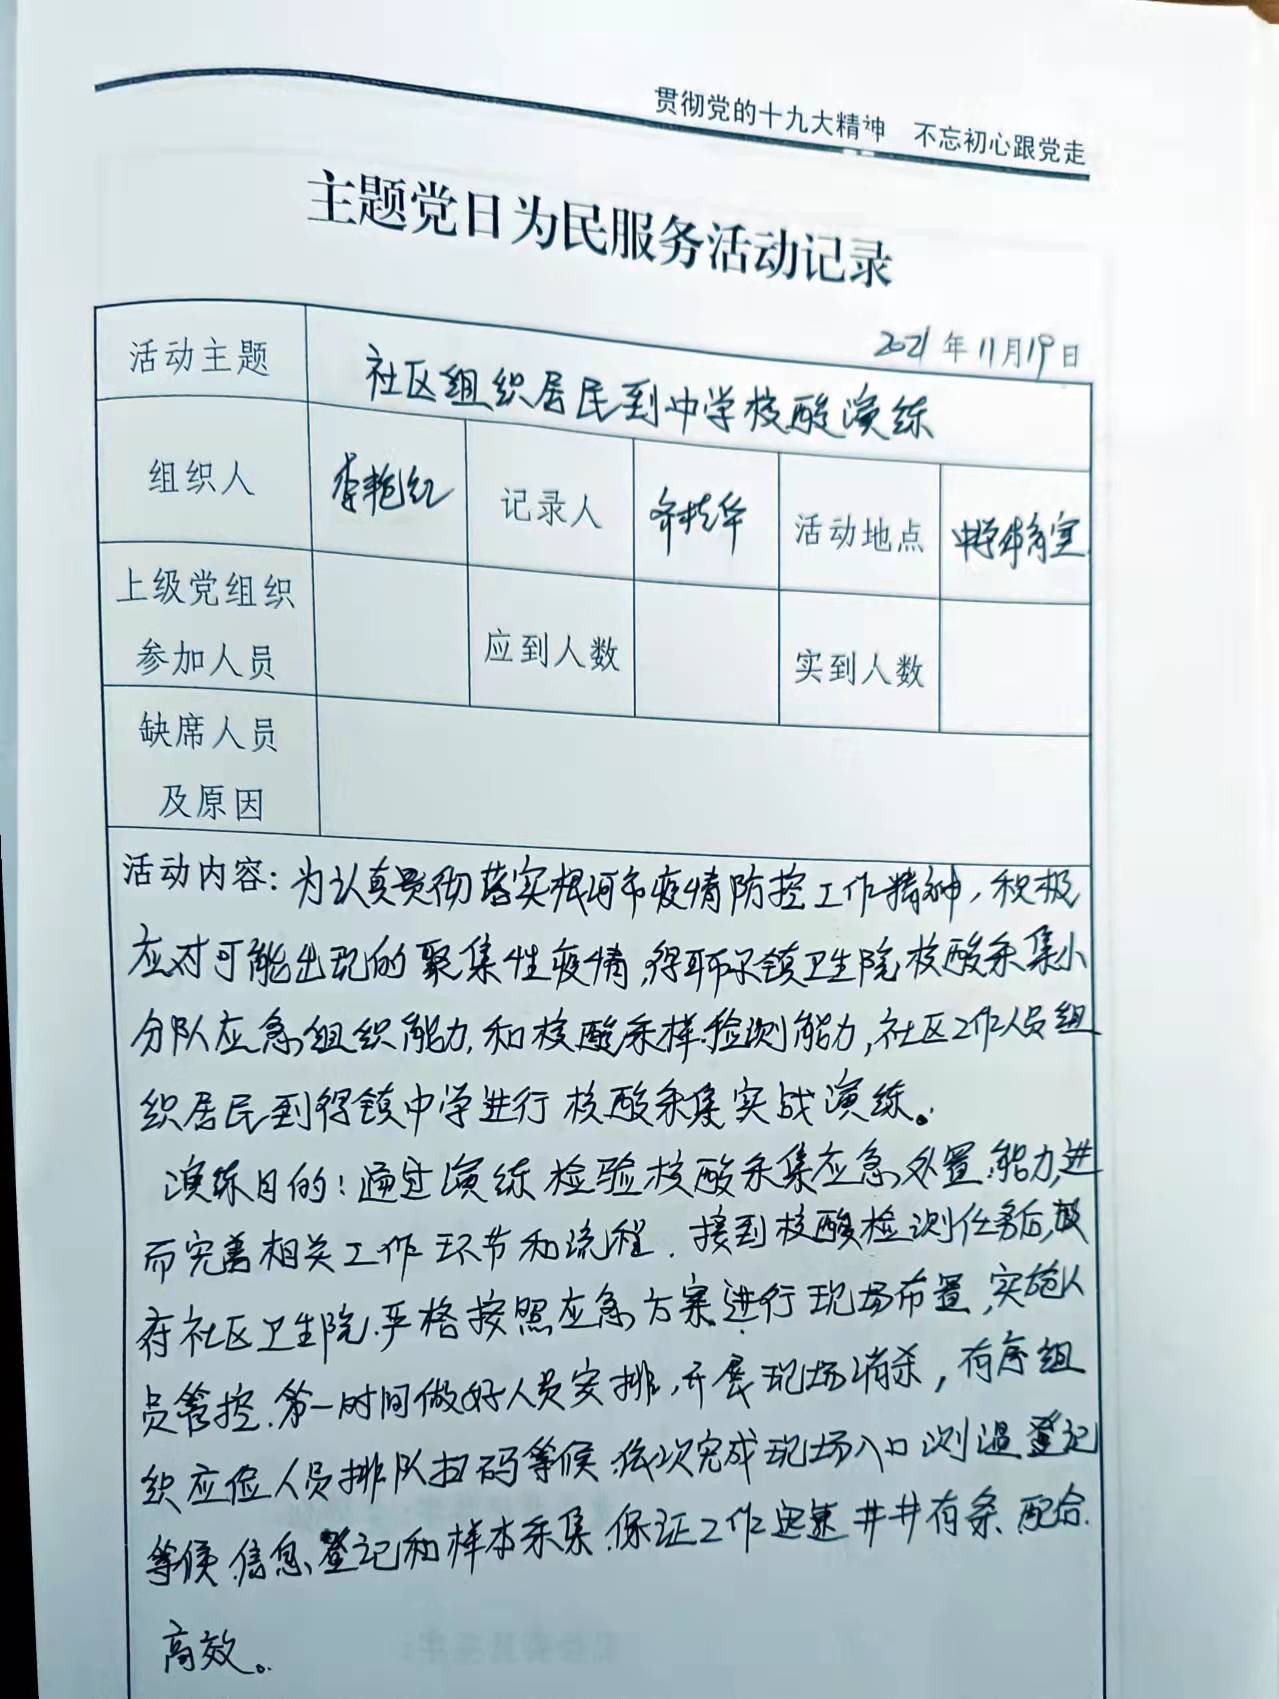 贯彻党的十九大精神 不忘初心跟党走
主题党日为民服务活动记录
2021年11月19日
活动主题 社区组织居民到中学核酸演练
组织人 李艳红 记录人 齐桂华 活动地点 中学体育室
上级党组织
参加人员 应到人数 实到人数
缺席人员
及原因
活动内容：为认真贯彻落实根河市疫情防控工作精神，积极
应对可能出现的聚集性疫情，得耳布尔镇卫生院核酸采集小
分队应急组织能力，和核酸采样检测能力，社区工作人员组
织居民到得镇中学进行核酸采集实战演练。
演练目的：通过演练检验核酸采集应急处置能力，进
而完善相关工作环节和流程．接到核酸检测任务后，政
府社区卫生院．严格按照应急方案进行现场布置，实施人
员管控．第一时间做好人员安排，开展现场消杀，有序组
织应检人员排队扫码等候．依次完成现场入口测温登记
等候．信息登记和样本采集．保证工作迅速井井有条．配合．
高效。